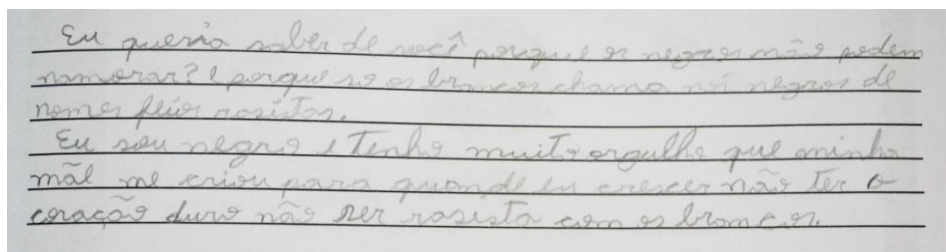 Eu queria saber de você porque os negros não podem
namorar? e porque so os brancos chama nós negros de
nomes feios rasistas.
Eu sou negro e Tenho muito orgulho que minha
mãe me criou para quando eu crescer não ter o
coração duro não ser rasista com os brancos.